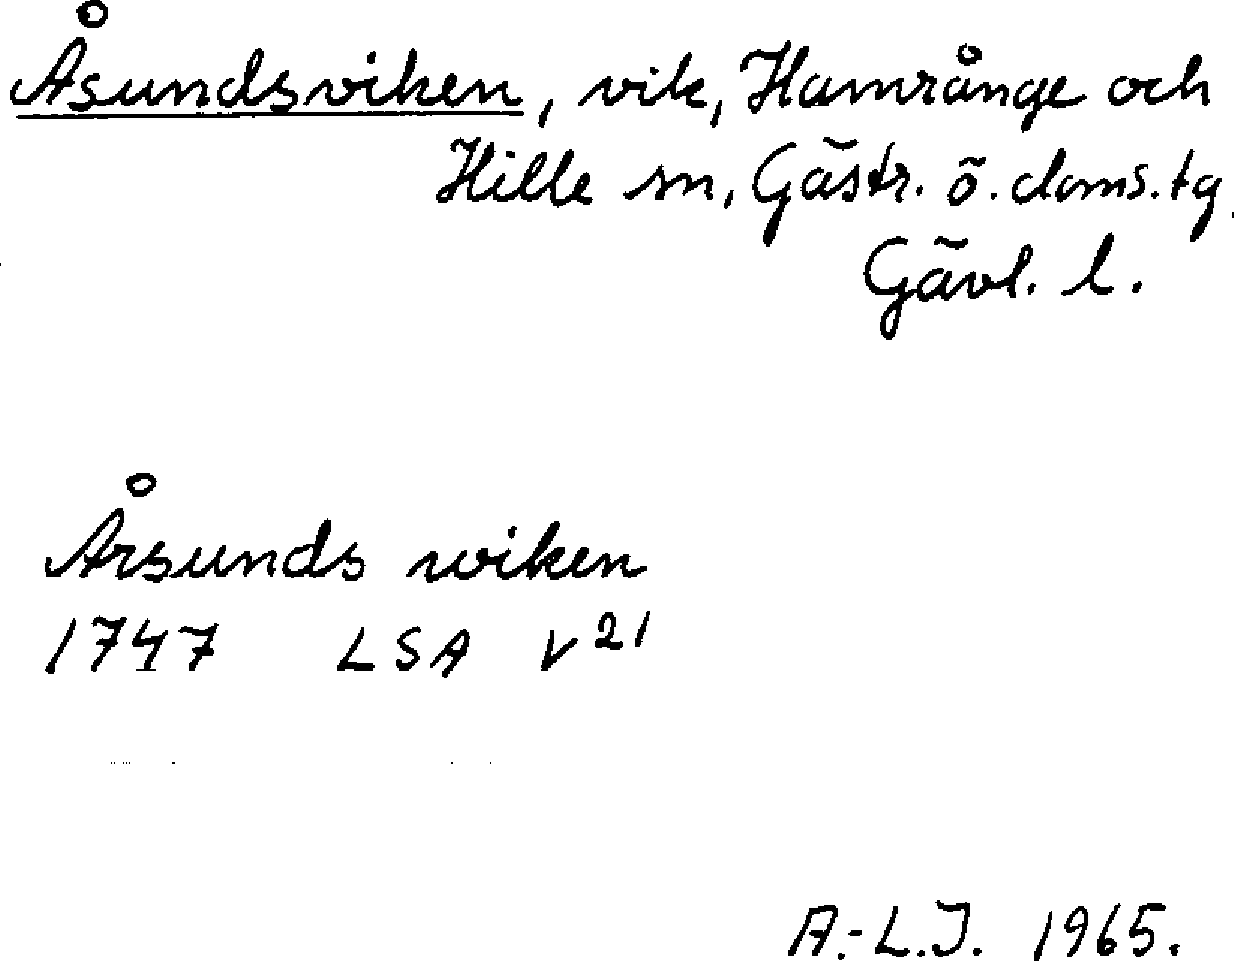 Åsundsviken, vik, Hamrånge och
Hille sn, Gästr. ö. doms.tg
Gävl. l.
Årsunds wiken
1747 LSA V 21
A.-L.J. 1965.